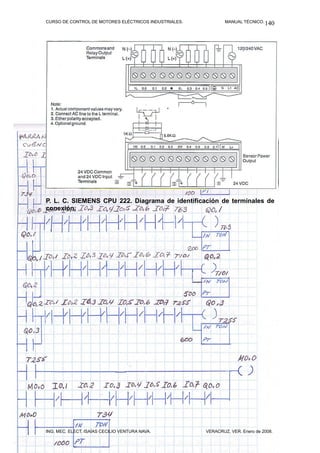 CURSO DE CONTROL DE MOTORES ELÉCTRICOS INDUSTRIALES. MANUAL TÉCNICO. 140
Command and Relay Output Terminals N (-) L (+) N (-) L (+) 120/240 VAC
1L 0.0 0.1 0.2 2L 0.3 0.4 0.5 N L1 AC
Note:
1. Actual component values may vary.
2. Connect AC line to the L terminal.
3. Either polarity accepted.
4. Optional ground.
1M 0.0 0.1 0.2 0.3 2M 0.4 0.5 0.6 0.7 M L+
Sensor Power Output
24 VDC Common and 24 VDC Input Terminals
24 VDC
I0.0
Q0.0
T34
100 PT
P. L. C. SIEMENS CPU 222. Diagrama de identificación de terminales de conexión.
Q0.0 I0.1 I0.2 I0.3 I0.4 I0.5 I0.6 I0.7 T63 Q0.1
Q0.1 T63
IN TON
200 PT
Q0.1 I0.1 I0.2 I0.3 I0.4 I0.5 I0.6 I0.7 T101 Q0.2
T101
Q0.2 IN TON
500 PT
Q0.2 I0.1 I0.2 I0.3 I0.4 I0.5 I0.6 I0.7 T255 Q0.3
T255
Q0.3 IN TON
600 PT
T255 M0.0
M0.0 I0.1 I0.2 I0.3 I0.4 I0.5 I0.6 I0.7 Q0.0
M0.0 T34
IN TON
1000 PT
ING. MEC. ELECT. ISAÍAS CECILIO VENTURA NAVA. VERACRUZ, VER. Enero de 2008.